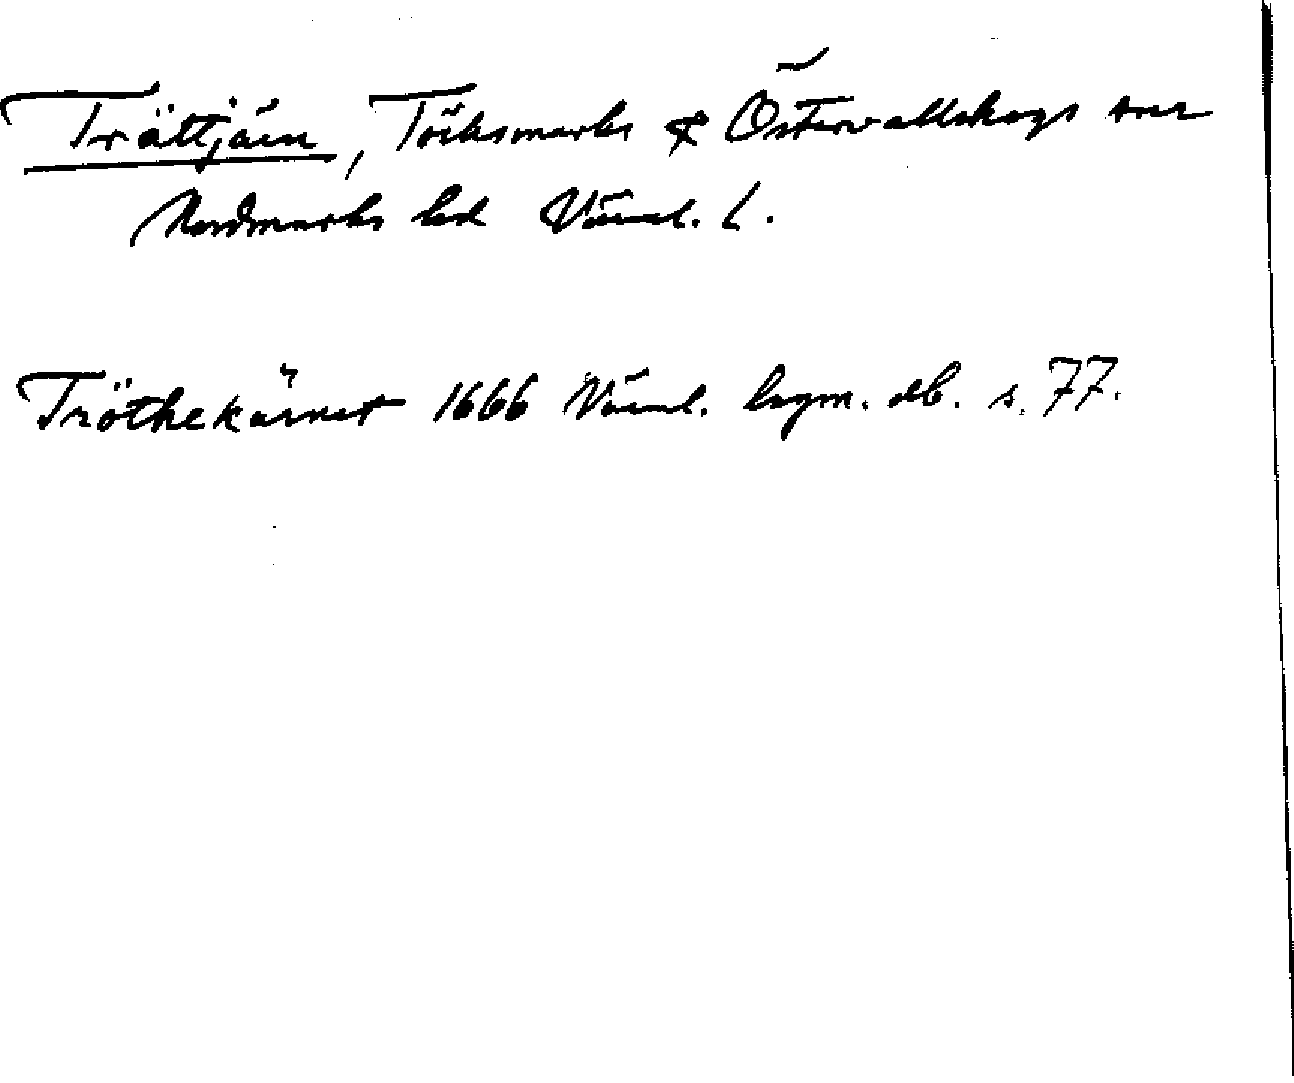 Trättjärn, Töcksmarks & Östervallskogs snr
Nordmarks hd Värml. L.
Tröthekärnet 1666 Värml. lagm. db. s. 77.